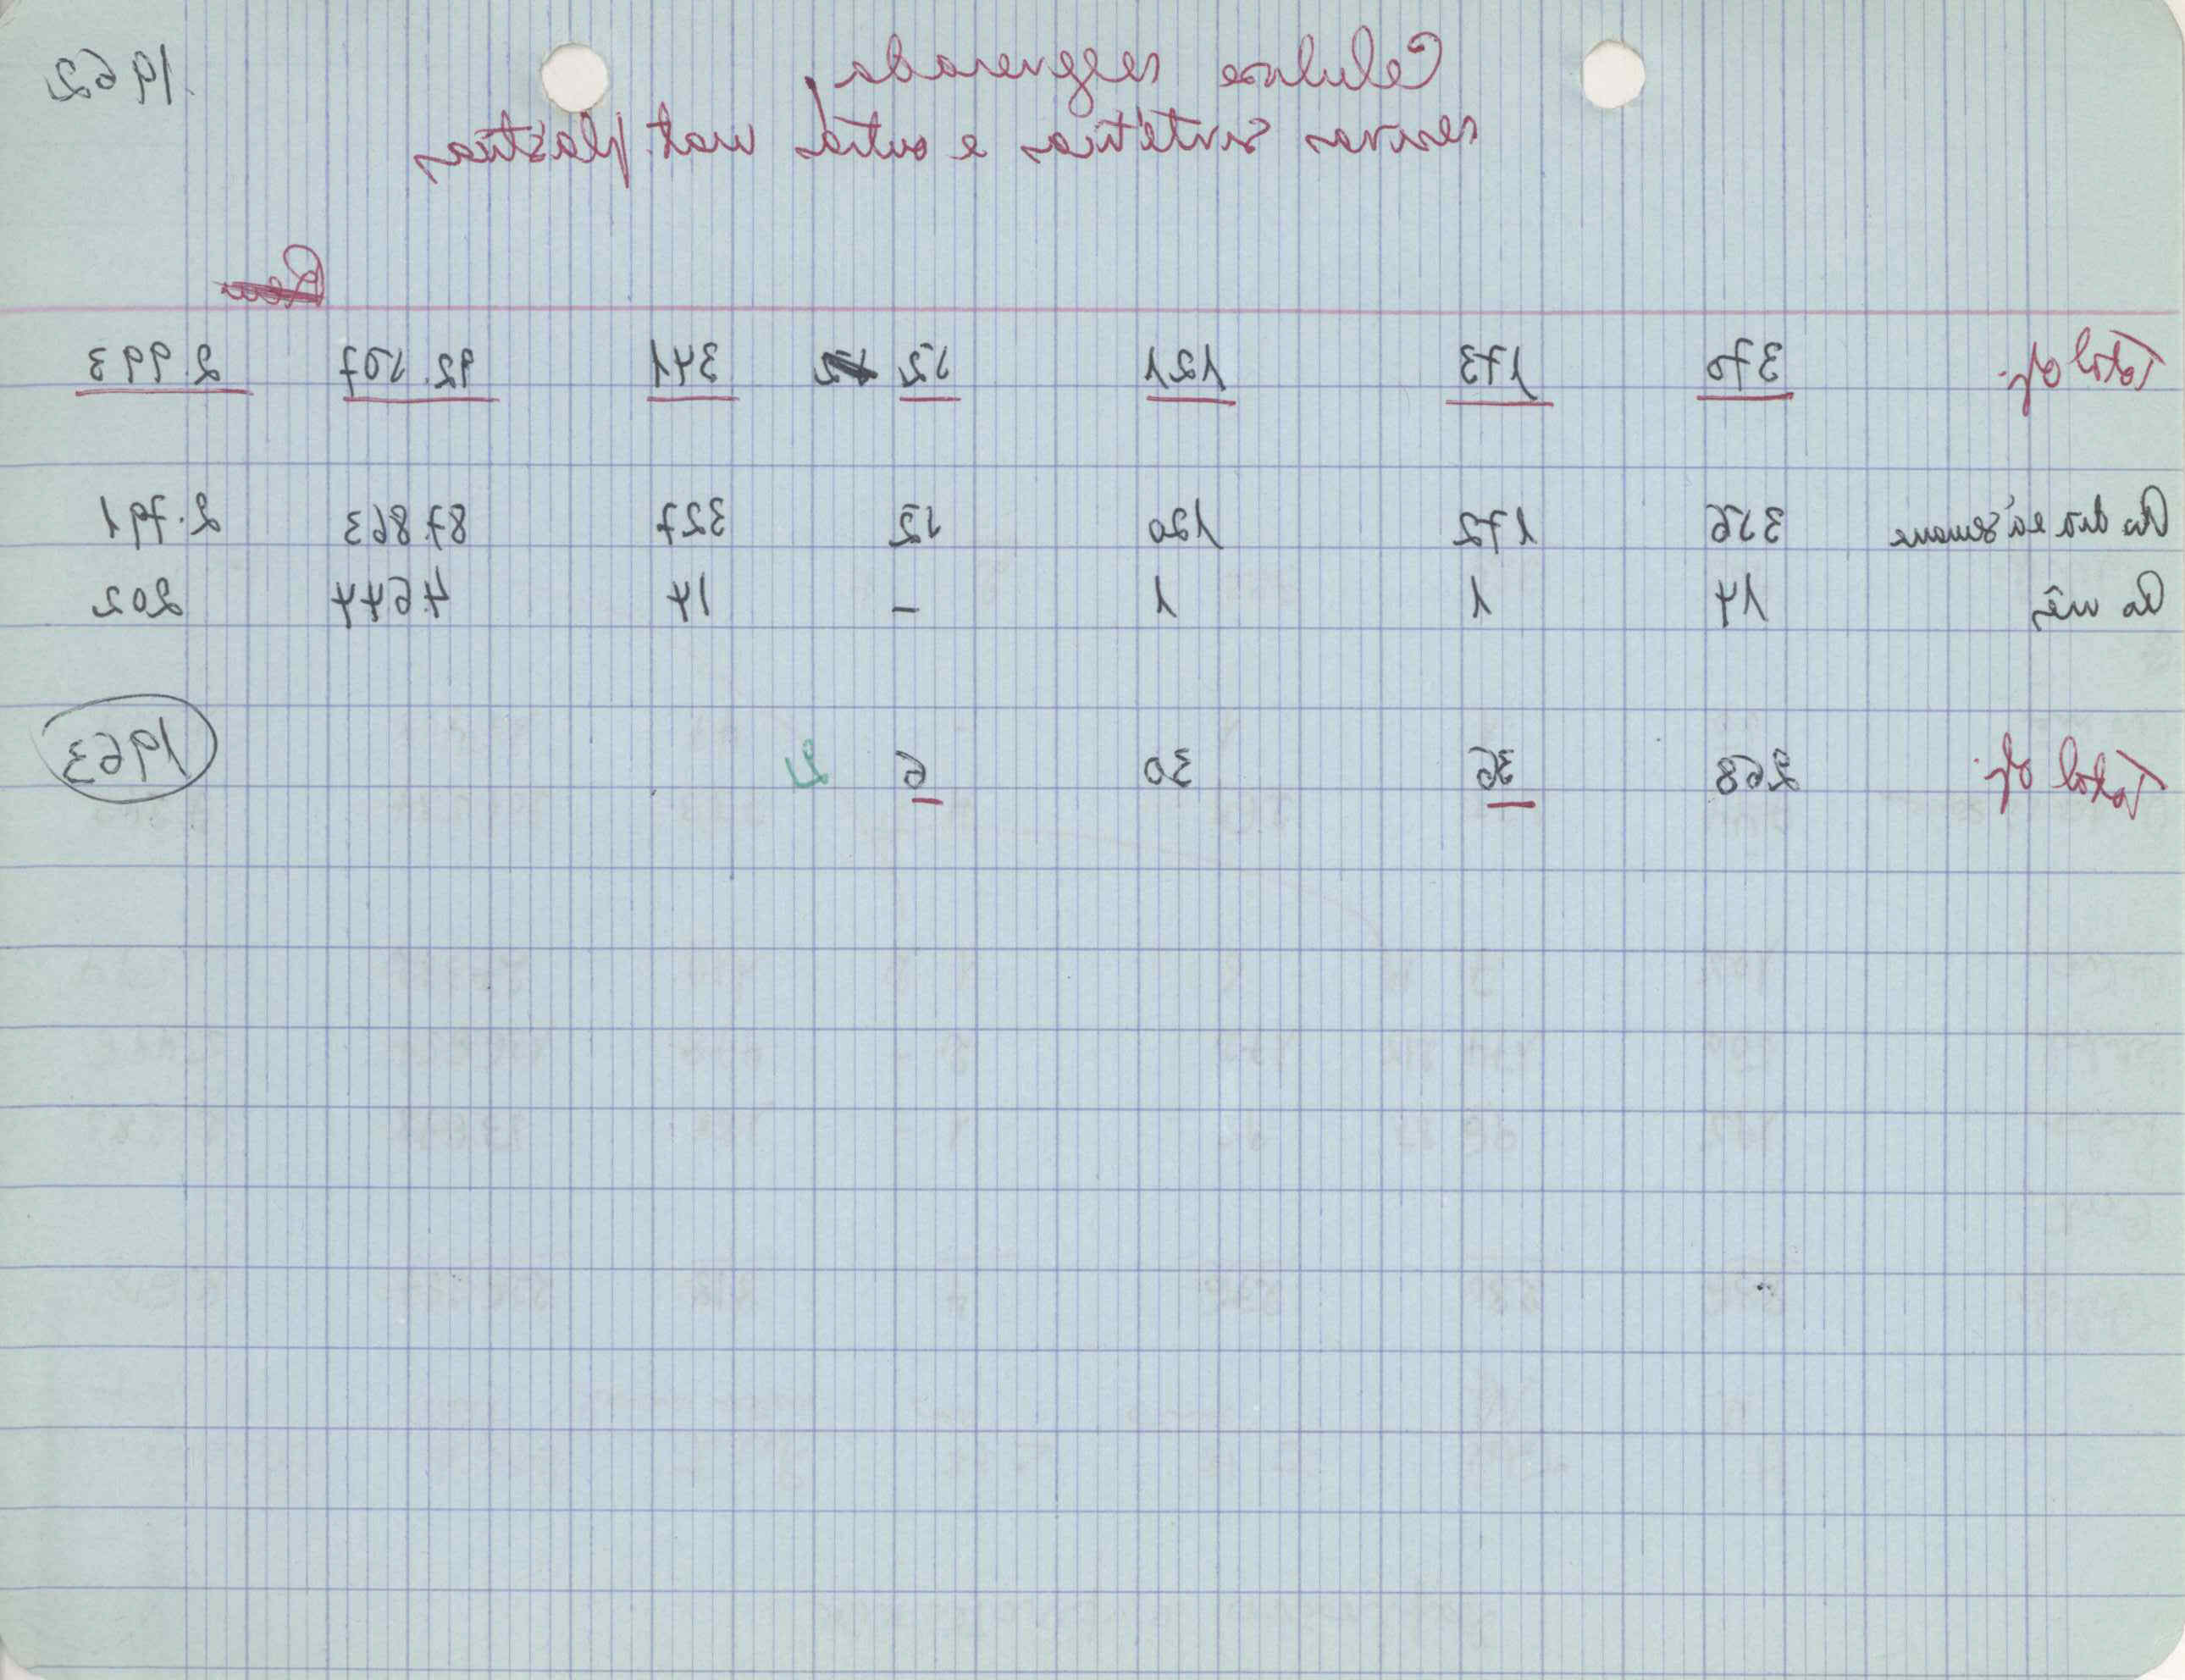 1962
Celulose regenerada,
resinas sintéticas e outras mat. plásticas
Total of. 370 173 121 52 341 92.507 2.993
Ao dia e à semana 356 172 120 52 327 87.863 2.791
Ao mês 14 1 1 - 14 4.644 202
Total of. 268 36 30 6 2 1963